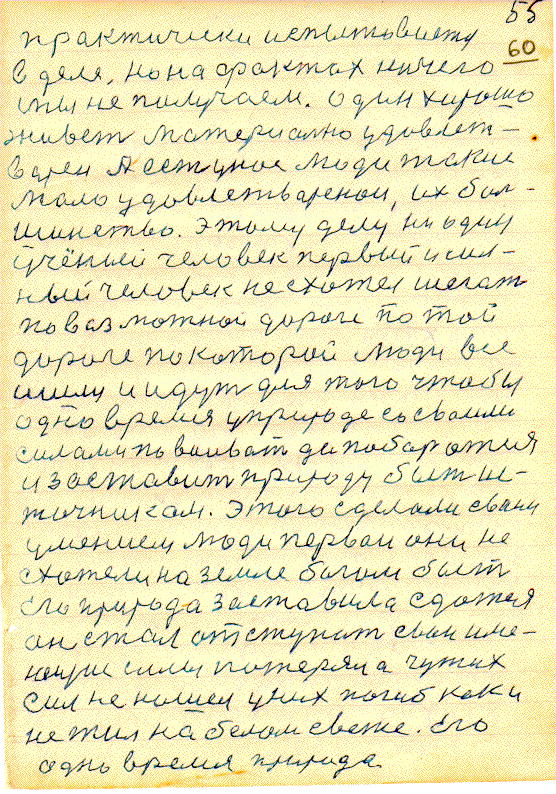 55
60
практически испытавшему
в деле, но на фактах ничего
мы не получаем. один хорошо
живет материално удовлет-
варен А есть уное люди такие
мало удовлетвареной, их бол-
шинство. Этому делу ни один
учёный человек первый и сил-
ный человек не схотел шегат
по вазможной дороге по той
дороге по которой люди все
шили и идут для того чтобы
одно время у природе со своими
силами повоиват да побаротся
и заставит природу быт ис-
точникам. Этого сделали своим
умением люди первои они не
схотели на земле богом быт
Его природа заставила сдатся
он стал отступат свои име-
ющие силы потерял а чужих
сил не нашел у них погиб как и
не жил на белом свете. Его
одно время природа